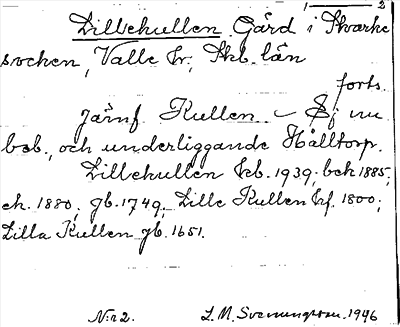 1 2
Lillekullen Gård i Skarke
socken, Valle hr., Skb. län
forts.
Jämf. Kullen – Ej nu
beb., och underliggande Hålltorp.
Lillekullen kb. 1939; bek 1885,
ek. 1880; gb. 1749; Lille Kullen hf. 1800;
Lilla Kullen gb. 1651.
N:r 2. L. M. Svenungsson. 1946